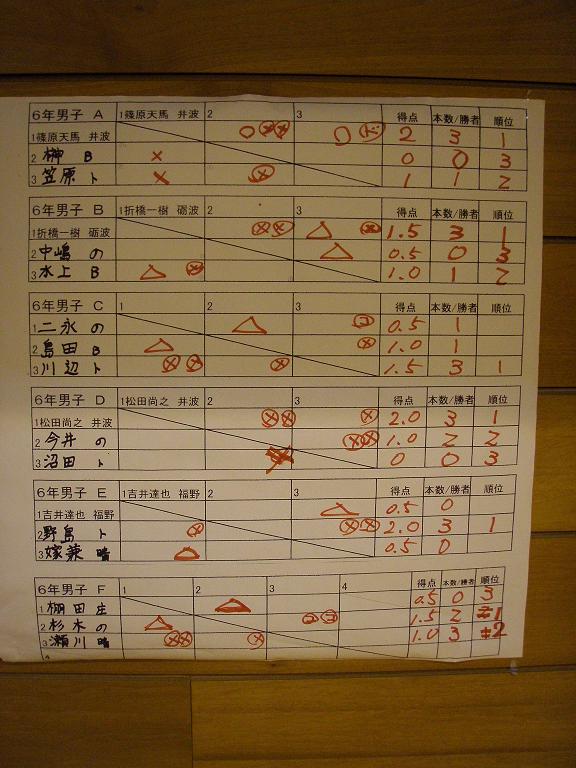 6年男子 A 1篠原天馬 井波 2 3 得点 本数/勝者 順位
1篠原天馬 井波 2 3 1
2 榊 B × 0 0 3
3 笠原 ト × 1 1 2
6年男子 B 1折橋一樹 砺波 2 3 得点 本数/勝者 順位
1折橋一樹 砺波 △ 1.5 3 1
2中嶋 の △ 0.5 0 3
3水上 B △ 1.0 1 2
6年男子 C 1 2 3 得点 本数/勝者 順位
1二永 の △ 0.5 1
2島田 B △ 1.0 1
3川辺 ト 1.5 3 1
6年男子 D 1松田尚之 井波 2 3 得点 本数/勝者 順位
1松田尚之 井波 2.0 3 1
2 今井 の 1.0 2 2
3 沼田 ト 0 0 3
6年男子 E 1吉井達也 福野 2 3 得点 本数/勝者 順位
1吉井達也 福野 △ 0.5 0
2野島 ト 2.0 3 1
3嫁兼 △ 0.5 0
6年男子 F 1 2 3 4 得点 本数/勝者 順位
1 棚田 庄 △ 0.5 0 3
2 杉木 の △ 1.5 2 1
3 瀬川 1.0 3 2
4